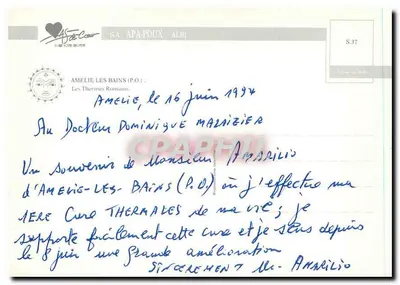 S.A. APA-POUX ALBI
S.37
AMELIE LES BAINS (P.O.) :
Les Thermes Romains.
AMELIE, le 16 juin 1994
Au Docteur DOMINIQUE MALAIZIER
Un souvenir de Monsieur AMARILIO
d'AMELIE-LES-BAINS (P.O.) où j'effectue ma
1ERE Cure THERMALES de ma vie; je
supporte facilement cette cure et je sens depuis
le 8 juin une grande amélioration
SINCEREMENT Mr. AMARILIO